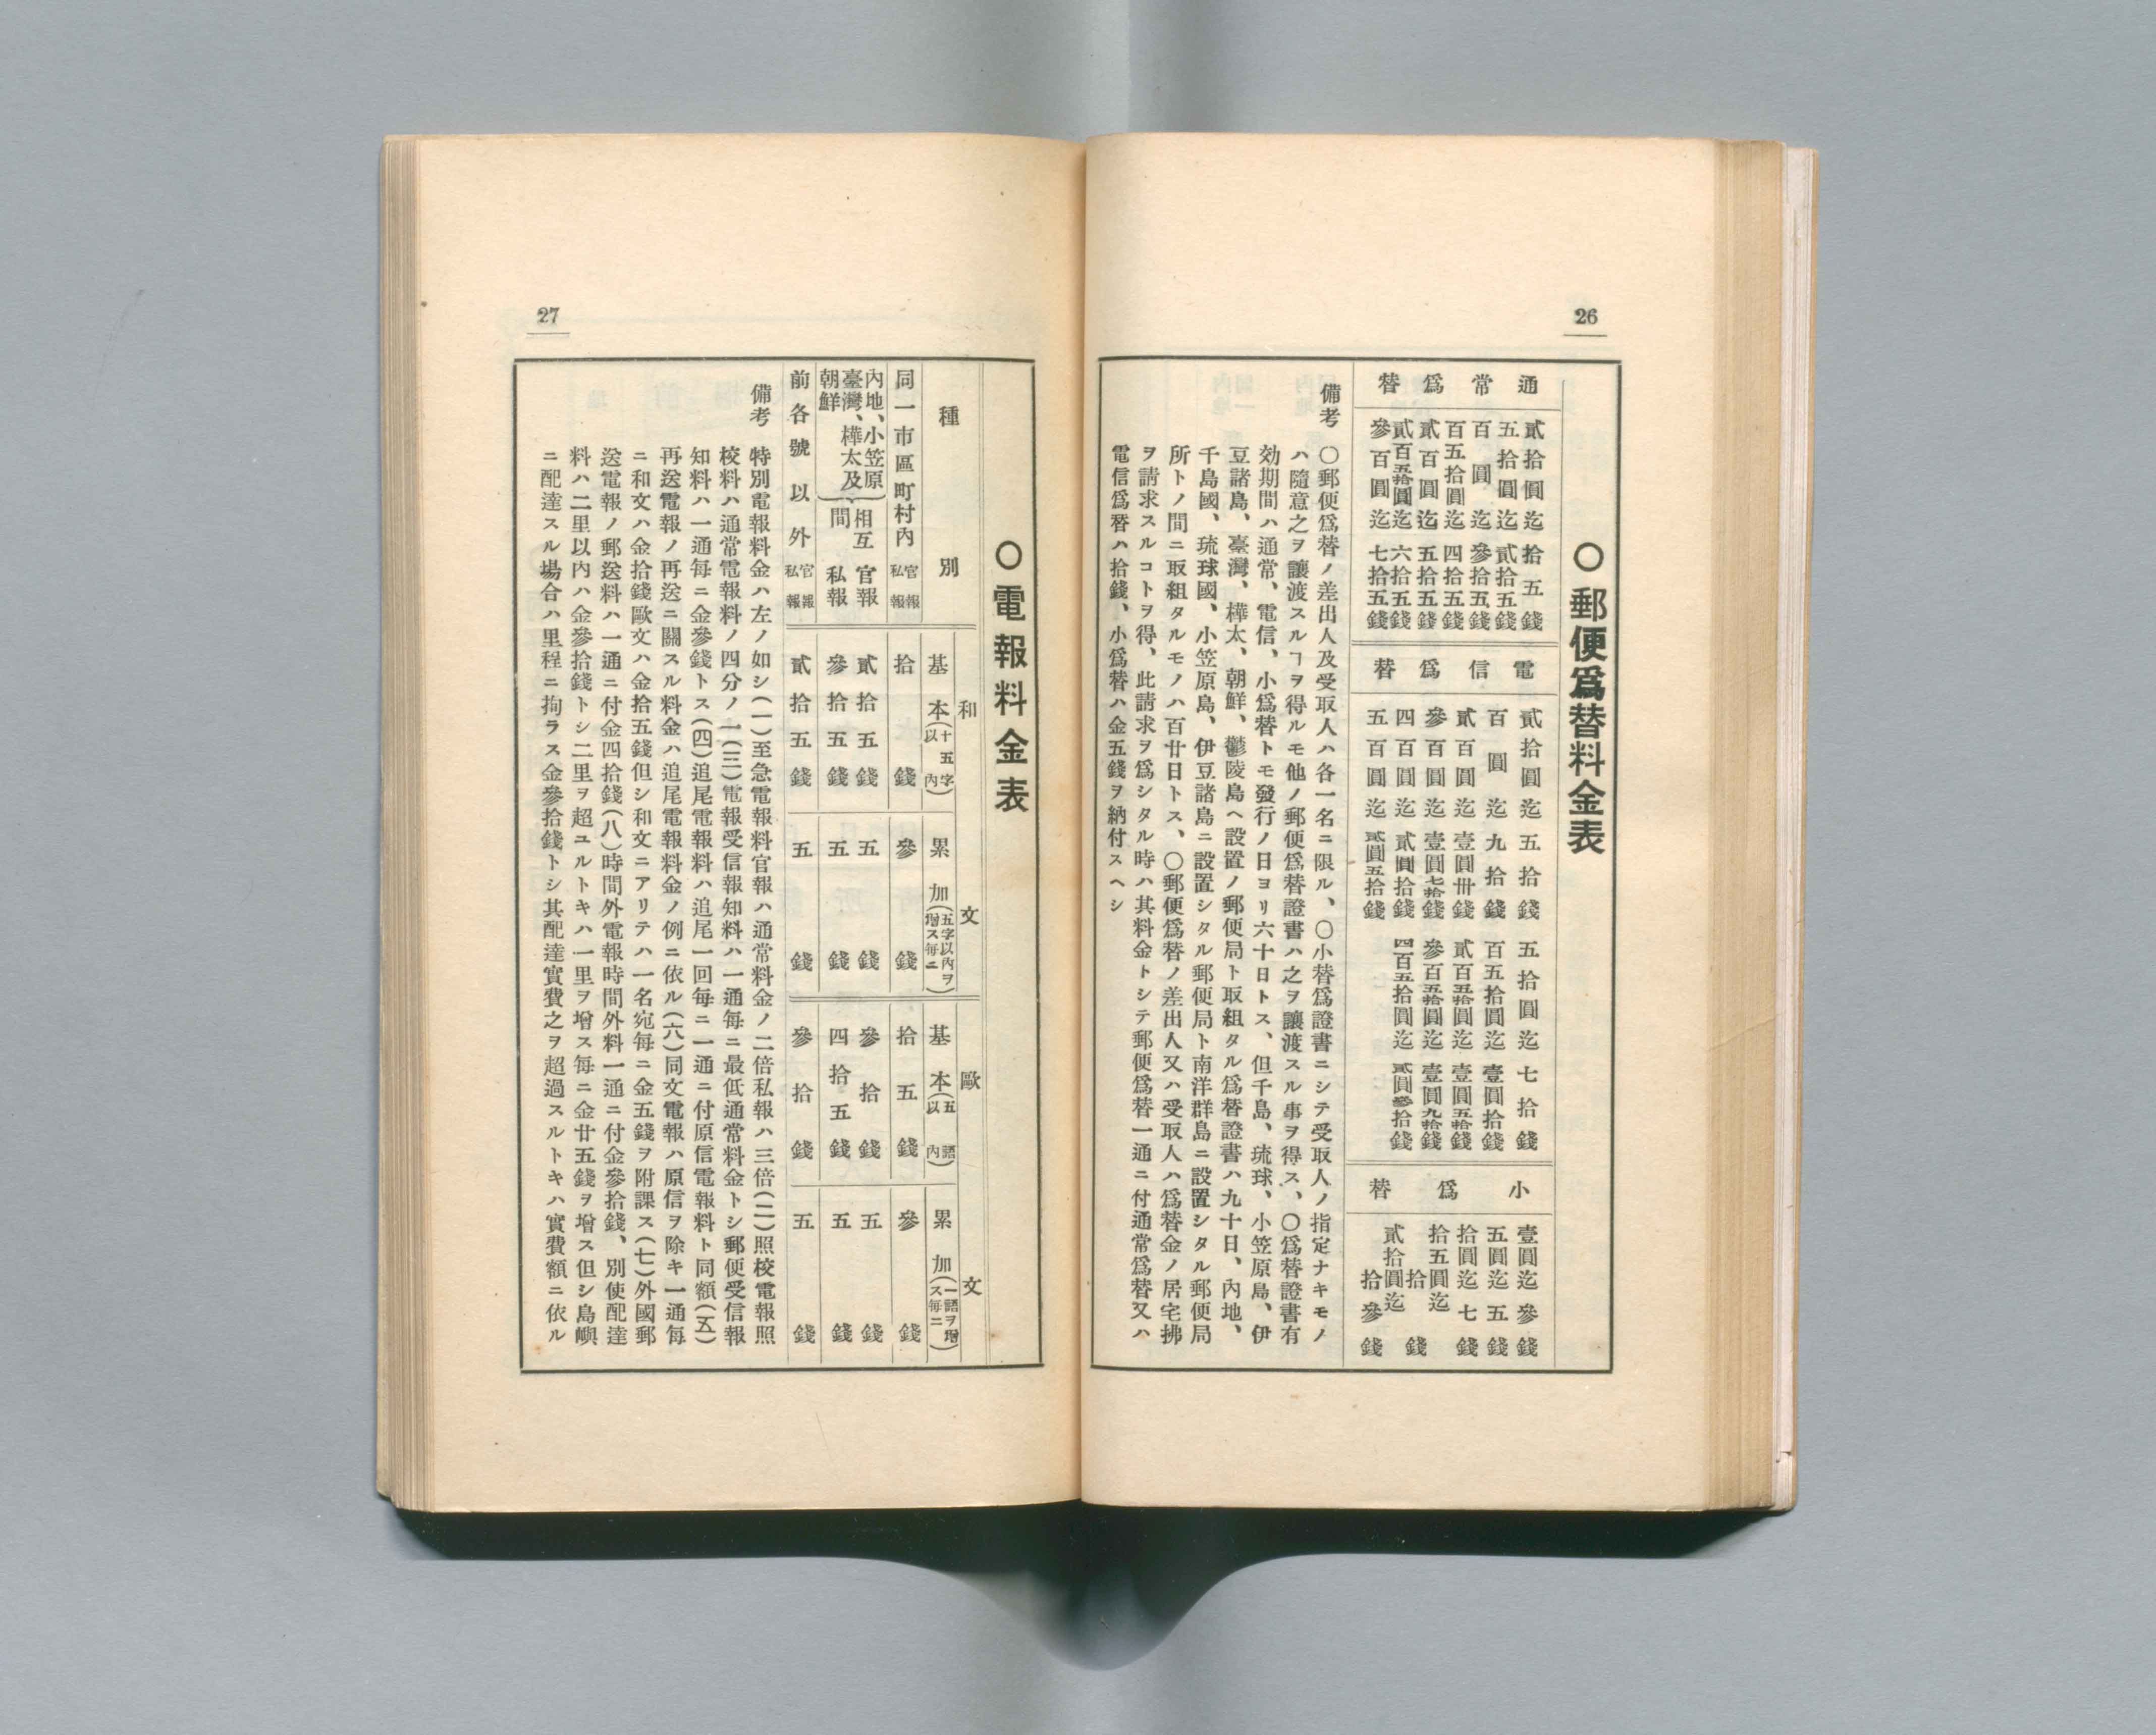 26
〇郵便爲替料金表
通常爲替
貳拾圓迄 拾五錢
五拾圓迄 貳拾五錢
百圓迄 參拾五錢
百五拾圓迄 四拾五錢
貳百圓迄 五拾五錢
貳百五拾圓迄 六拾五錢
參百圓迄 七拾五錢
電信爲替
貳拾圓迄 五拾錢
百圓迄 九拾錢
貳百圓迄 壹圓卅錢
參百圓迄 壹圓七拾錢
四百圓迄 貳圓拾錢
五百圓迄 貳圓五拾錢
五拾圓迄 七拾錢
百五拾圓迄 壹圓拾錢
貳百五拾圓迄 壹圓五拾錢
參百五拾圓迄 壹圓九拾錢
四百五拾圓迄 貳圓參拾錢
小爲替
壹圓迄 參錢
五圓迄 五錢
拾圓迄 七錢
拾五圓迄 拾錢
貳拾圓迄 拾參錢
備考 〇郵便爲替ノ差出人及受取人ハ各一名ニ限ル、〇小替爲證書ニシテ受取人ノ指定ナキモノ
ハ隨意之ヲ讓渡スルヿヲ得ルモ他ノ郵便爲替證書ハ之ヲ讓渡スル事ヲ得ス、〇爲替證書有
効期間ハ通常、電信、小爲替トモ發行ノ日ヨリ六十日トス、但千島、琉球、小笠原島、伊
豆諸島、臺灣、樺太、朝鮮、鬱陵島ヘ設置ノ郵便局ト取組タル爲替證書ハ九十日、內地、
千島國、琉球國、小笠原島、伊豆諸島ニ設置シタル郵便局ト南洋群島ニ設置シタル郵便局
所トノ間ニ取組タルモノハ百廿日トス、〇郵便爲替ノ差出人又ハ受取人ハ爲替金ノ居宅拂
ヲ請求スルコトヲ得、此請求ヲ爲シタル時ハ其料金トシテ郵便爲替一通ニ付通常爲替又ハ
電信爲替ハ拾錢、小爲替ハ金五錢ヲ納付スヘシ
27
〇電報料金表
種別
和文
歐文
基本(十五字以內)
累加(五字以內ヲ增ス每ニ)
基本(五語以內)
累加(一語ヲ增ス每ニ)
同一市區町村內 官報 私報 拾錢 參錢 拾五錢 參錢
內地、小笠原
臺灣、樺太及
朝鮮
相互間
官報 貳拾五錢 五錢 參拾錢 五錢
私報 參拾五錢 五錢 四拾五錢 五錢
前各號以外 官報 私報 貳拾五錢 五錢 參拾錢 五錢
備考
特別電報料金ハ左ノ如シ(一)至急電報料官報ハ通常料金ノ二倍私報ハ三倍(二)照校電報照
校料ハ通常電報料ノ四分ノ一(三)電報受信報知料ハ一通每ニ最低通常料金トシ郵便受信報
知料ハ一通每ニ金參錢トス(四)追尾電報料ハ追尾一回每ニ一通ニ付原信電報料ト同額(五)
再送電報ノ再送ニ關スル料金ハ追尾電報料金ノ例ニ依ル(六)同文電報ハ原信ヲ除キ一通每
ニ和文ハ金拾錢歐文ハ金拾五錢但シ和文ニアリテハ一名宛每ニ金五錢ヲ附課ス(七)外國郵
送電報ノ郵送料ハ一通ニ付金四拾錢(八)時間外電報時間外料一通ニ付金參拾錢、別使配達
料ハ二里以內ハ金參拾錢トシ二里ヲ超ユルトキハ一里ヲ增ス每ニ金廿五錢ヲ增ス但シ島嶼
ニ配達スル場合ハ里程ニ拘ラス金參拾錢トシ其配達實費之ヲ超過スルトキハ實費額ニ依ル